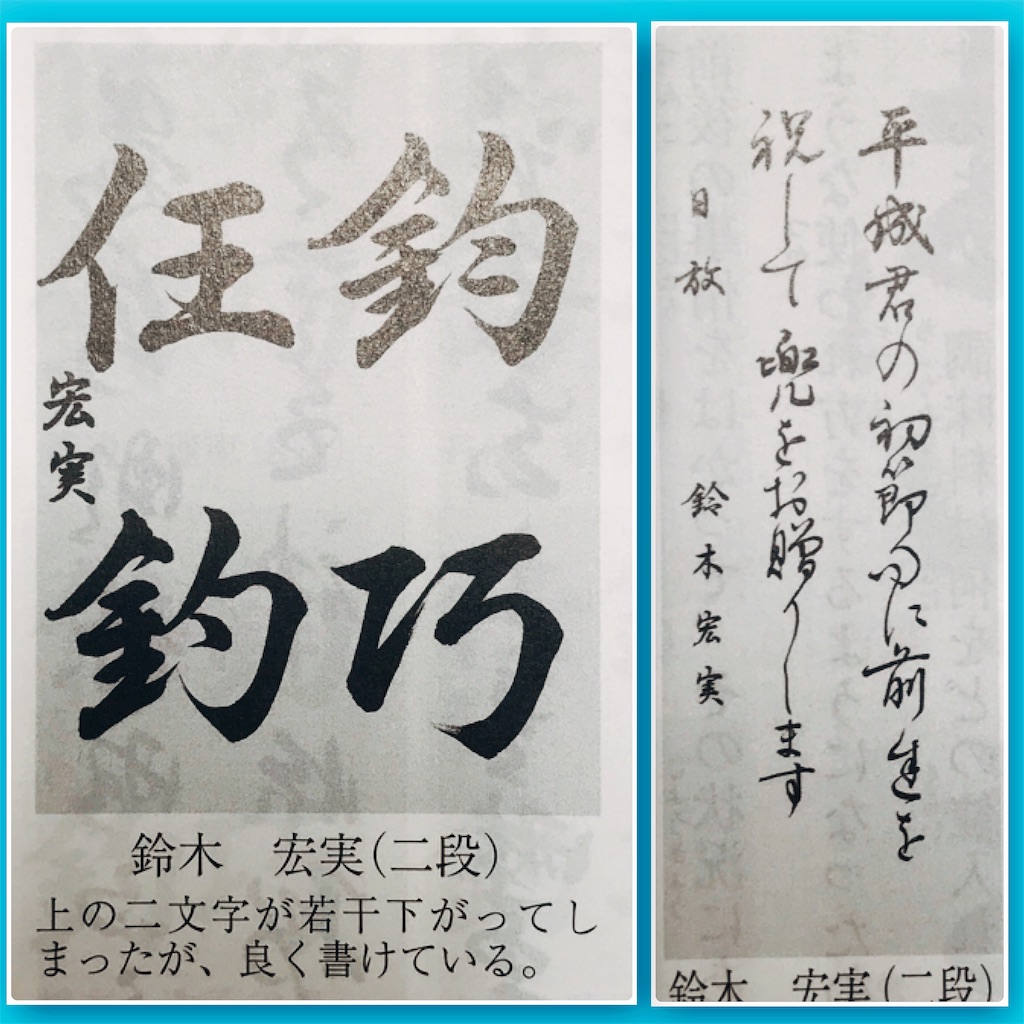 鈞巧
任釣
宏実
鈴木　宏実(二段)
上の二文字が若干下がってし
まったが、良く書けている。
平城君の初節句に前途を
祝して兜をお贈りします
日放　鈴木宏実
鈴木　宏実(二段)